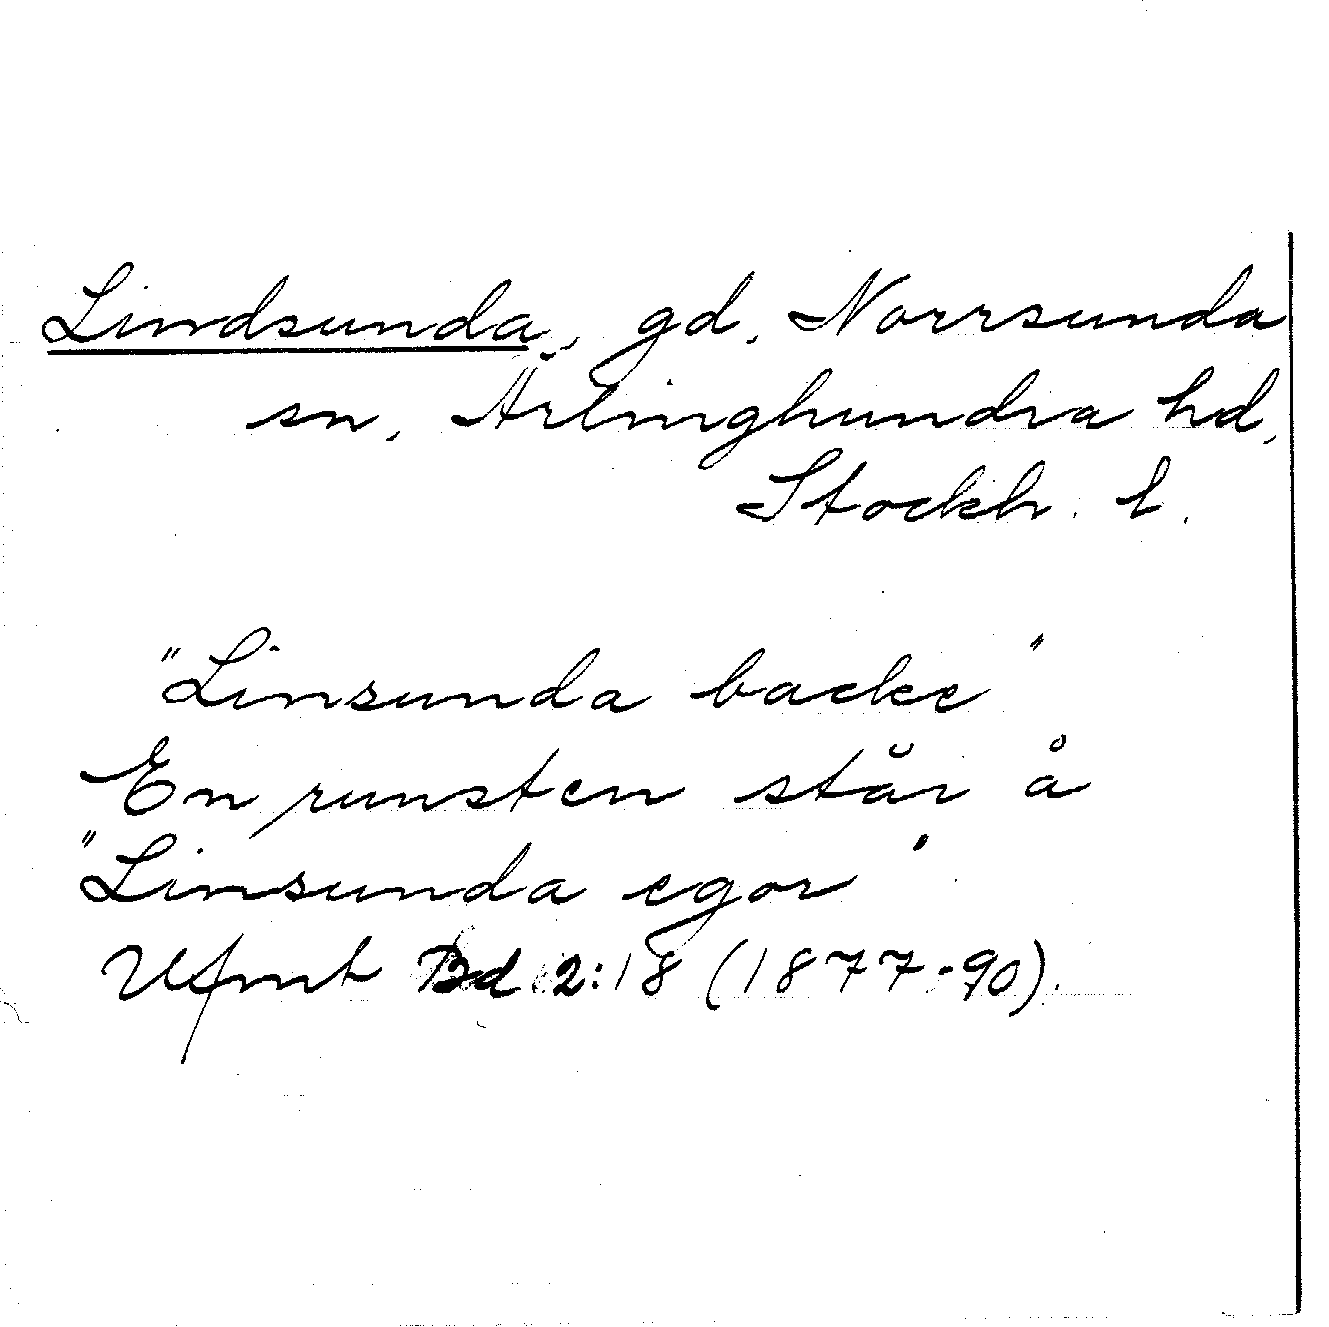 Lindsunda, gd, Norrsunda
sn, Ärlinghundra hd,
Stockh. l.
"Linsunda backe"
En runsten står å
"Linsunda egor"
Ufmt Bd 2:18 (1877-90).